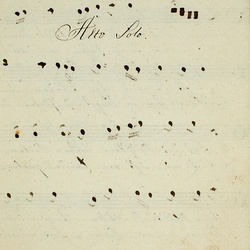 Alto Solo.